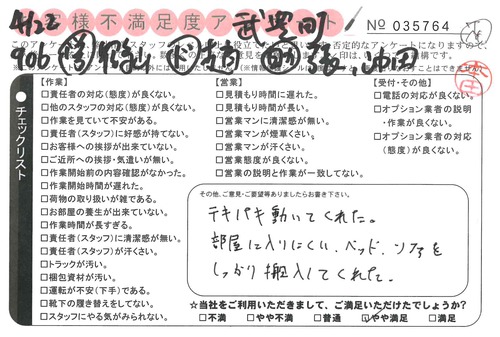 4/22 お客様不満足度アンケート 武豊町
No 035764
【作業】
□責任者の対応(態度)が良くない。
□他のスタッフの対応(態度)が良くない。
□作業を見ていて不安がある。
□責任者(スタッフ)に好感が持てない。
□お客様への挨拶が出来ていない。
□ご近所への挨拶・気遣いが無い。
□作業開始前の内容確認がなかった。
□作業開始時間が遅れた。
□荷物の取り扱いが雑である。
□お部屋の養生が出来ていない。
□作業時間が長すぎる。
□責任者(スタッフ)に清潔感が無い。
□責任者(スタッフ)が汗くさい。
□トラックが汚い。
□梱包資材が汚い。
□運転が不安(下手)である。
□靴下の履き替えをしてない。
□スタッフにやる気がみられない。
チェックリスト
【営業】
□見積もり時間に遅れた。
□見積もり時間が長い。
□営業マンに清潔感が無い。
□営業マンが煙草くさい。
□営業マンが汗くさい。
□営業態度が良くない。
□営業の説明と作業が一致してない。
【受付・その他】
□電話の対応が良くない。
□オプション業者の説明
・作業が良くない。
□オプション業者の対応
(態度)が良くない。
その他、ご意見・ご要望等ありましたらお書き下さい。
テキパキ動いてくれた。
部屋に入りにくい、ベッド、ソファを
しっかり搬入してくれた。
☆当社をご利用いただきまして、ご満足いただけたでしょうか?
□不満 □やや不満 □普通 □やや満足 □満足